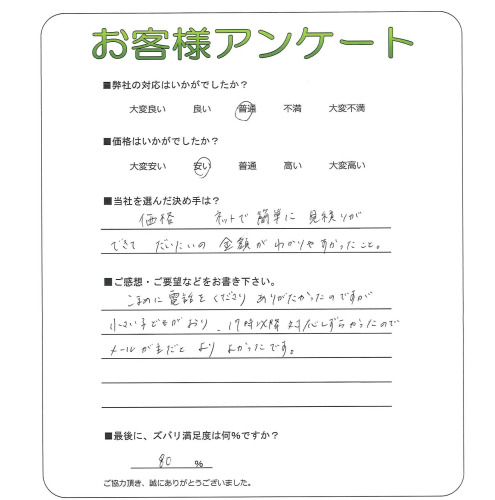 お客様アンケート
■弊社の対応はいかがでしたか？
大変良い　良い　普通　不満　大変不満
■価格はいかがでしたか？
大変安い　安い　普通　高い　大変高い
■当社を選んだ決め手は？
価格　ネットで簡単に見積りが
できて だいたいの 金額が わかりやすかったこと。
■ご感想・ご要望などをお書き下さい。
こまめに電話をくださり ありがたかったのですが
小さい子どもがおり、17時以降 対応しずらかったので
メールが主だと より よかったです。
■最後に、ズバリ満足度は何%ですか？
80 %
ご協力頂き、誠にありがとうございました。